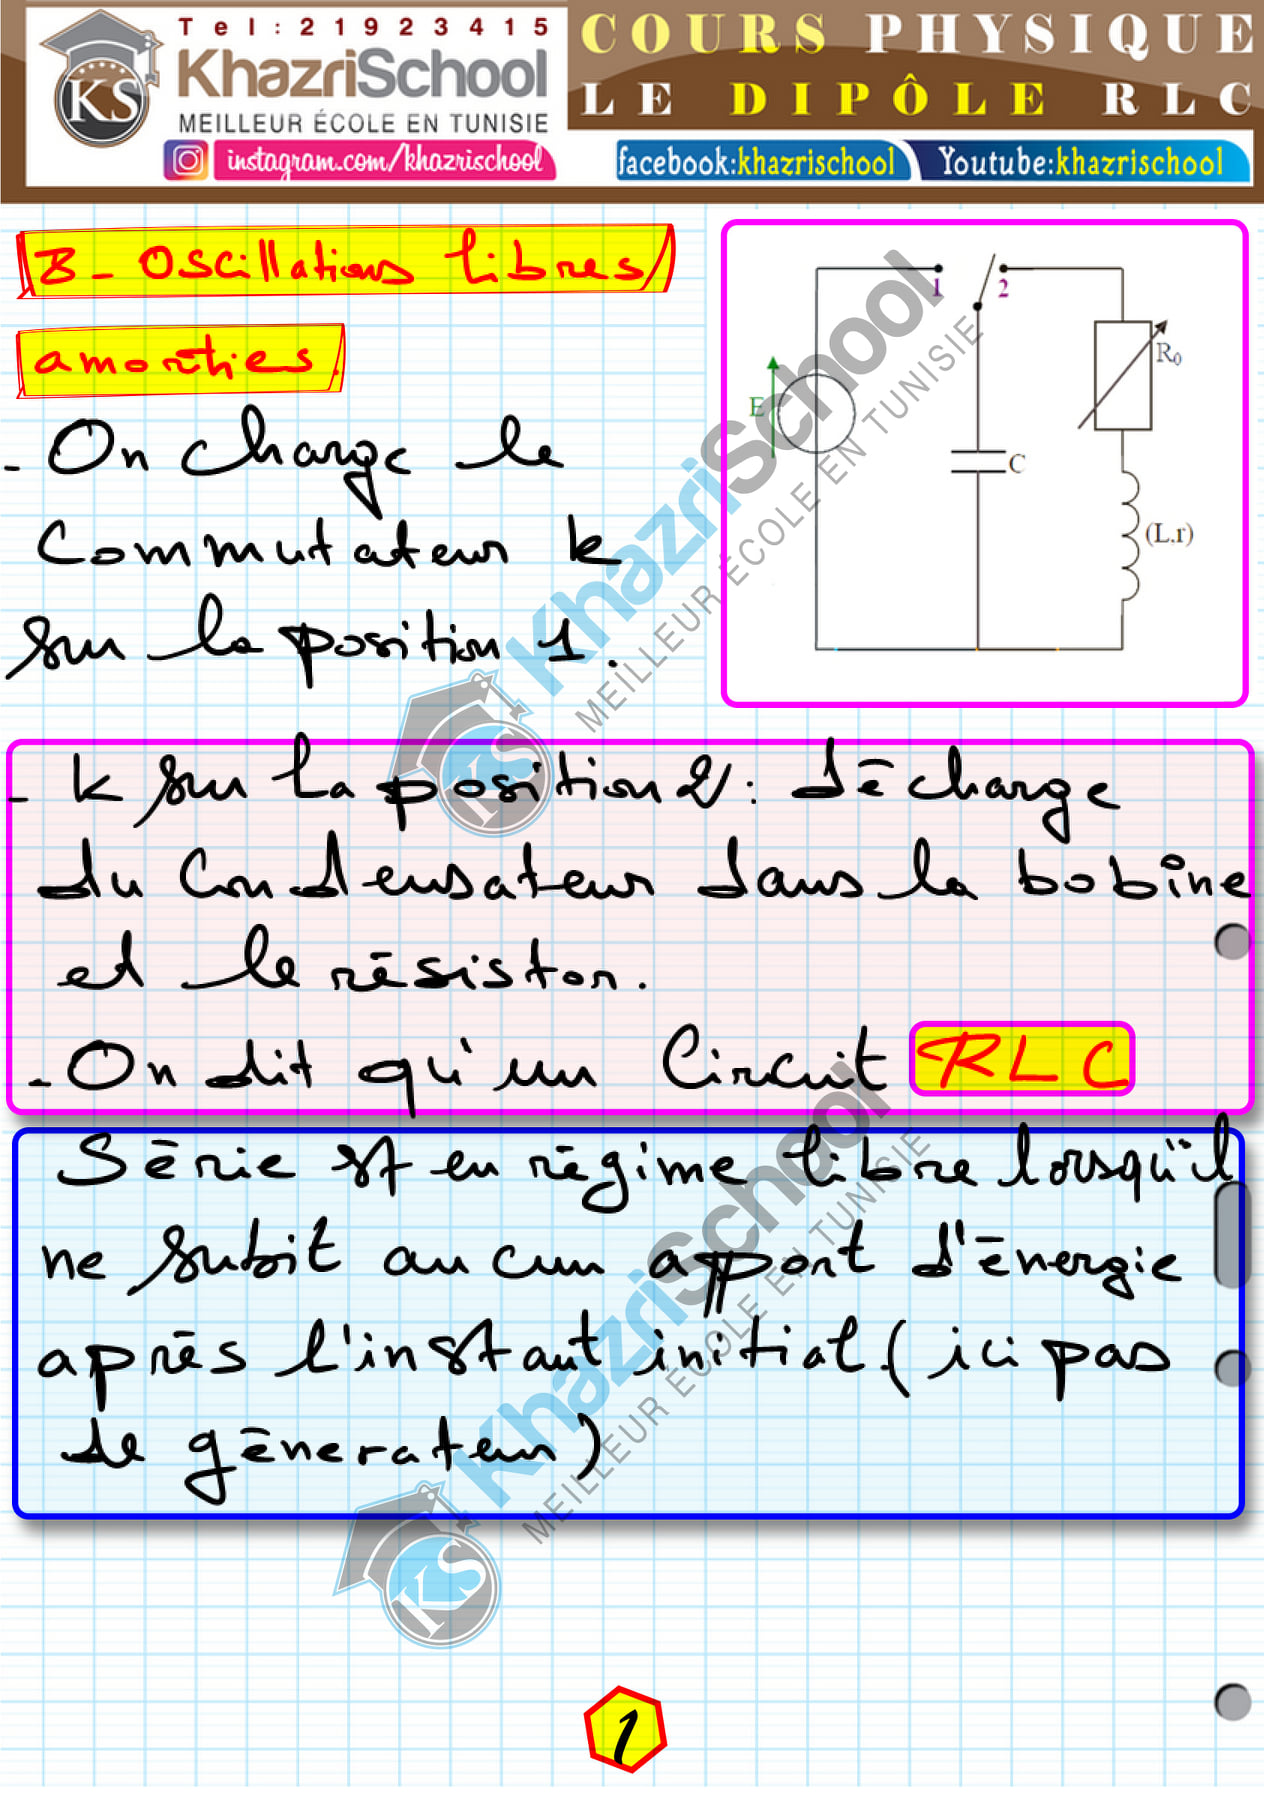 Tel:21923415
KhazriSchool
MEILLEUR ÉCOLE EN TUNISIE
instagram.com/khazrischool
COURS PHYSIQUE
LE DIPÔLE RLC
facebook:khazrischool
Youtube:khazrischool
KS
B- Oscillations libres
amorties.
- On charge le
Commutateur k
sur la position 1.
1 2
E
R0
C
(L,r)
- k sur la position 2 : décharge
du Condensateur dans la bobine
et le résistor.
- On dit qu'un Circuit RLC
Série est en régime libre lorsqu'il
ne subit aucun apport d'énergie
après l'instant initial (ici pas
de génerateur)
KhazriSchool
MEILLEUR ÉCOLE EN TUNISIE
KS
KhazriSchool
MEILLEUR ÉCOLE EN TUNISIE
KS
1